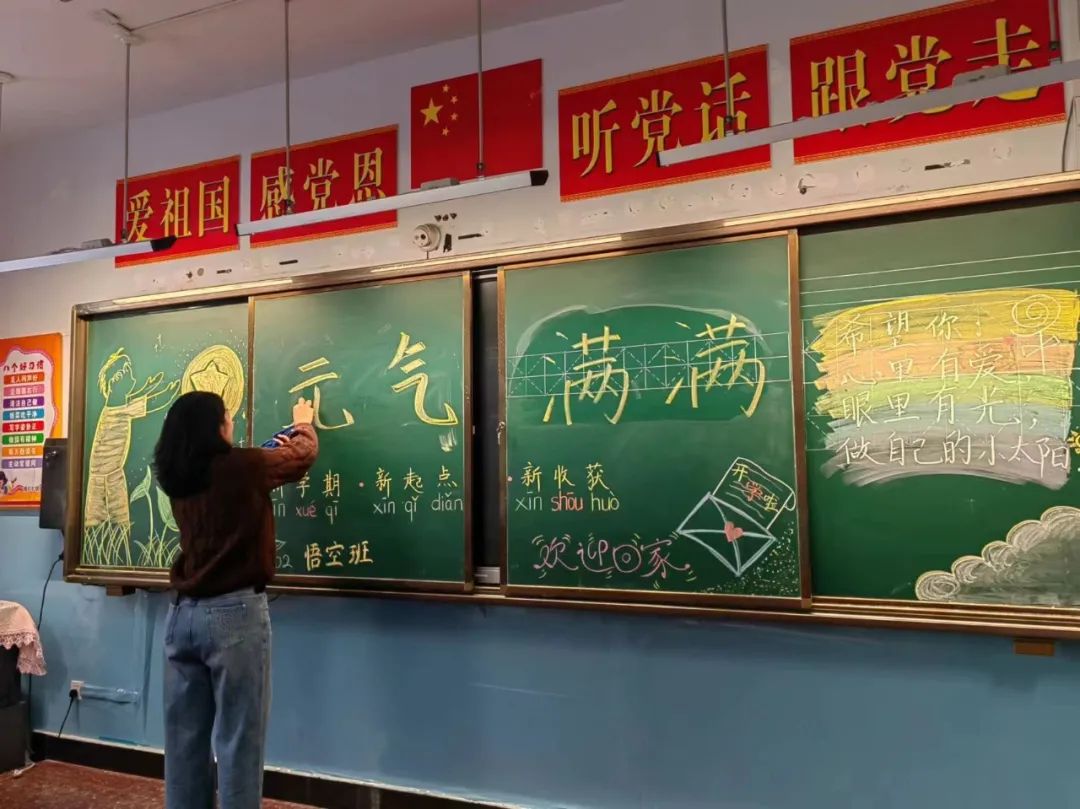 爱祖国
感党恩
听党话
跟党走
八个好习惯
元气
满满
学期
xué qī
·新起点
xīn qǐ diǎn
·新收获
xīn shōu huò
悟空班
开学啦
欢迎回家
希望你:
心里有爱
眼里有光,
做自己的小太阳